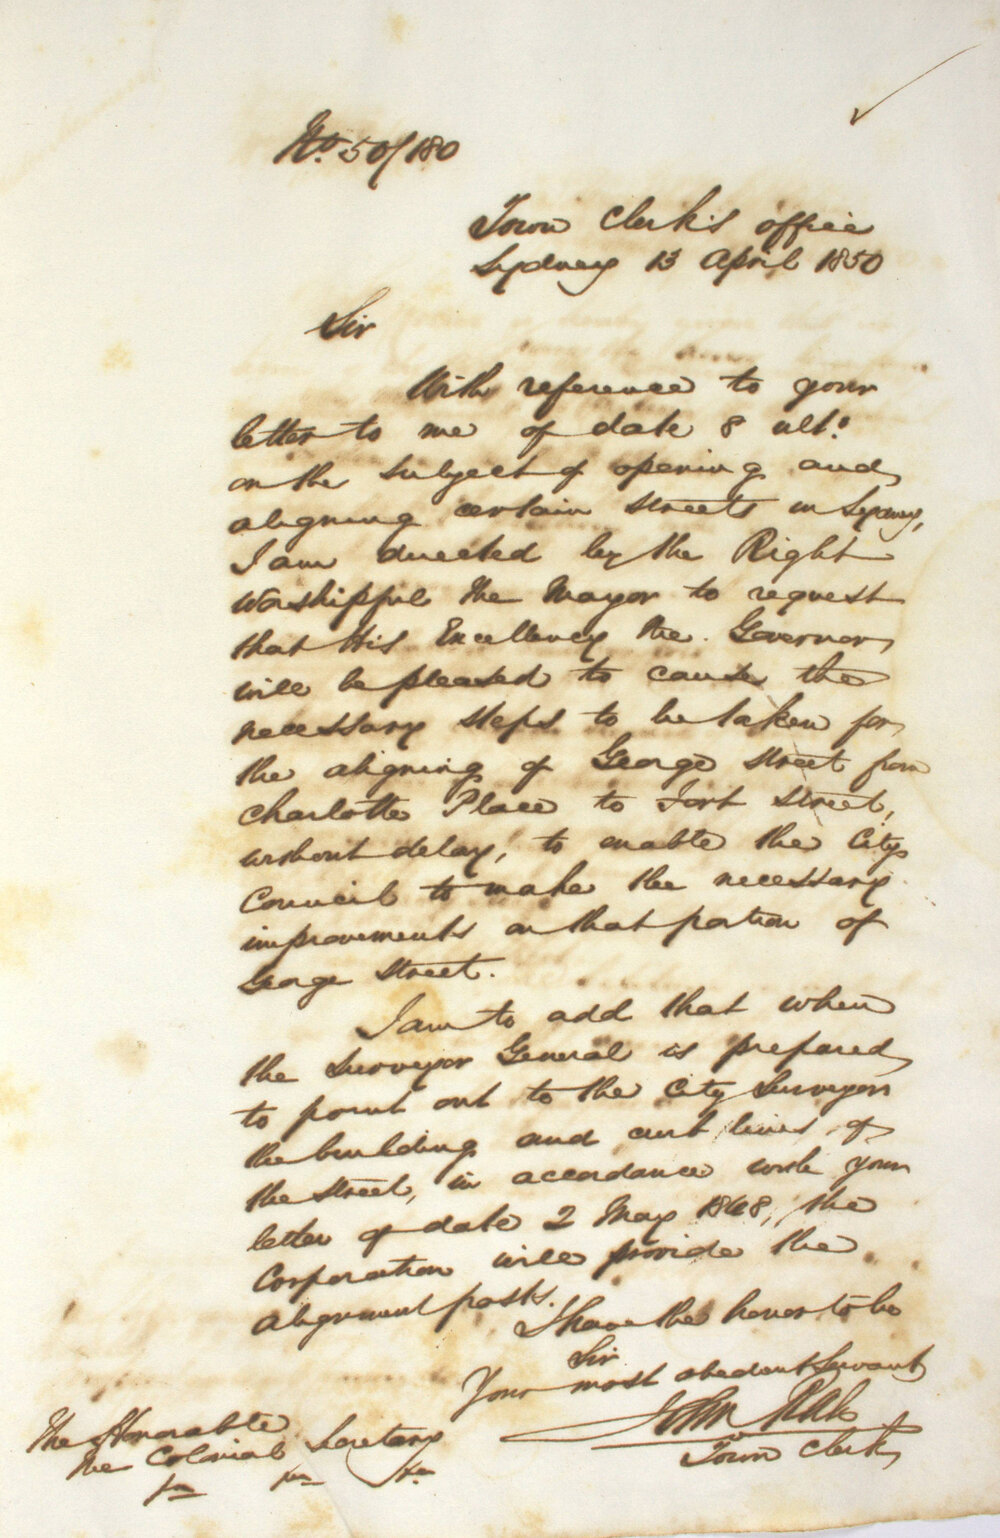 No. 50/180
Town Clerk's office
Sydney 13 April 1850
Sir
With reference to your
letter to me of date 8 ulto.
on the subject of opening and
aligning certain streets in Sydney,
I am directed by the Right
Worshipful the Mayor to request
that His Excellency the Governor
will be pleased to cause the
necessary steps to be taken for
the aligning of George Street from
Charlotte Place to Fort Street,
without delay, to enable the City
Council to make the necessary
improvements on that portion of
George Street.
I am to add that when
the Surveyor General is prepared
to point out to the City Surveyor
the building and curb lines of
the Street, in accordance with your
letter of date 2 May 1848, the
Corporation will provide the
alignment posts.
I have the honor to be
Sir
Your most obedient Servant
John Rae
Town Clerk
The Honorable
the Colonial Secretary